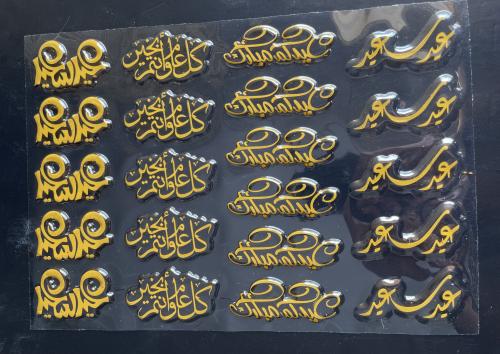 عيد سعيد عيدكم مبارك كل عام وأنتم بخير
عيد سعيد عيدكم مبارك كل عام وأنتم بخير
عيد سعيد عيدكم مبارك كل عام وأنتم بخير
عيد سعيد عيدكم مبارك كل عام وأنتم بخير
عيد سعيد عيدكم مبارك كل عام وأنتم بخير